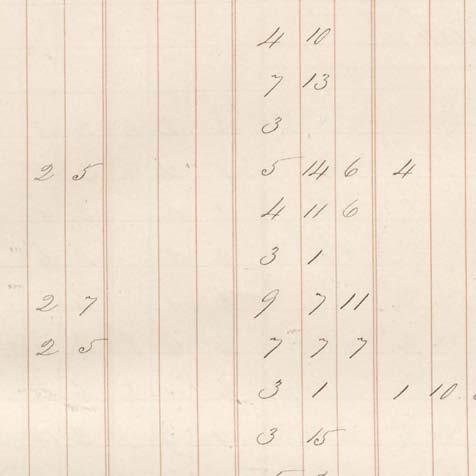 4 10
7 13
3
2 5 5 14 6 4
4 11 6
3 1
2 7 9 7 11
2 5 7 7 7
3 1 1 10
3 15